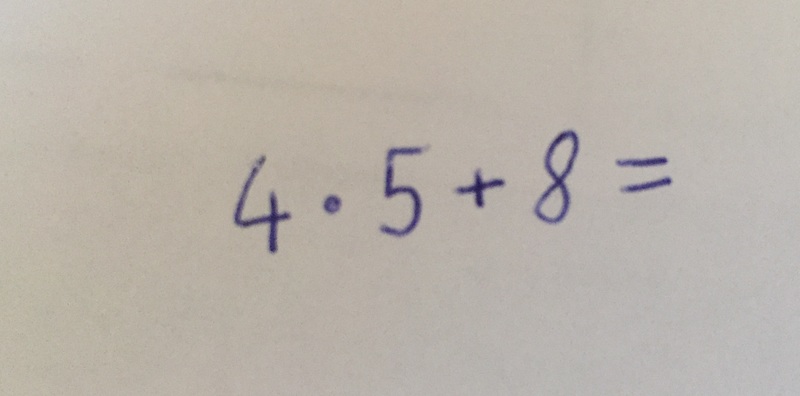 4 · 5 + 8 =